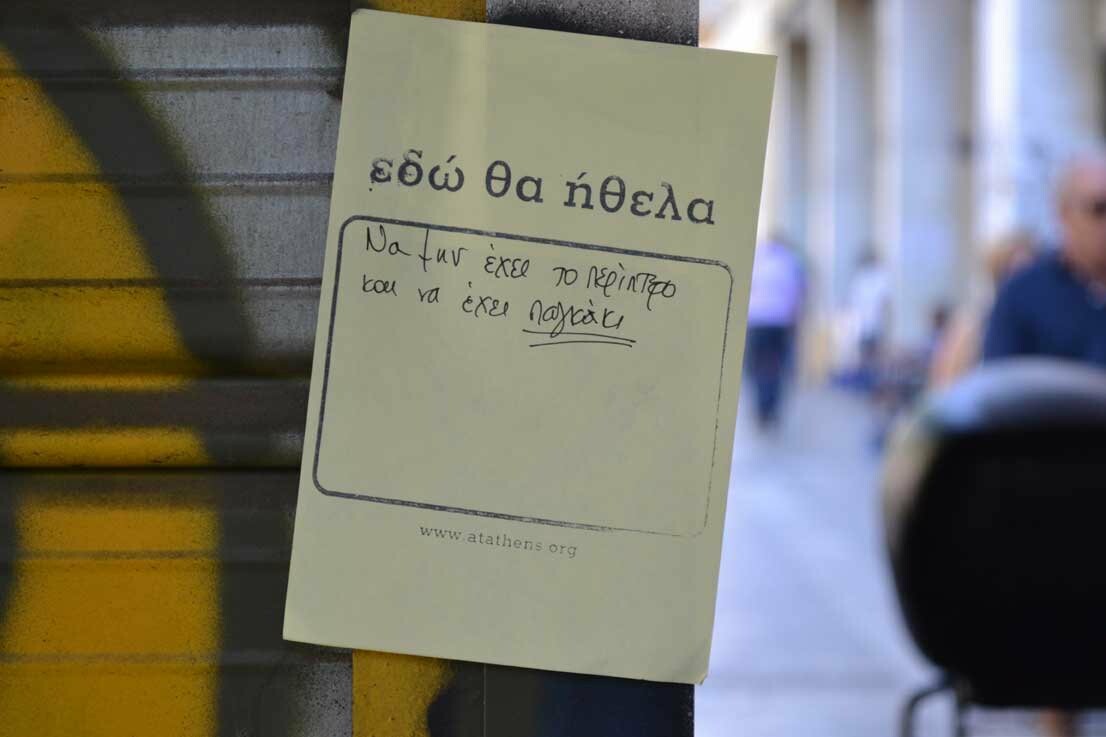 εδώ θα ήθελα
Να μην έχει το περίπτερο
και να έχει παγκάκι
www.atathens.org